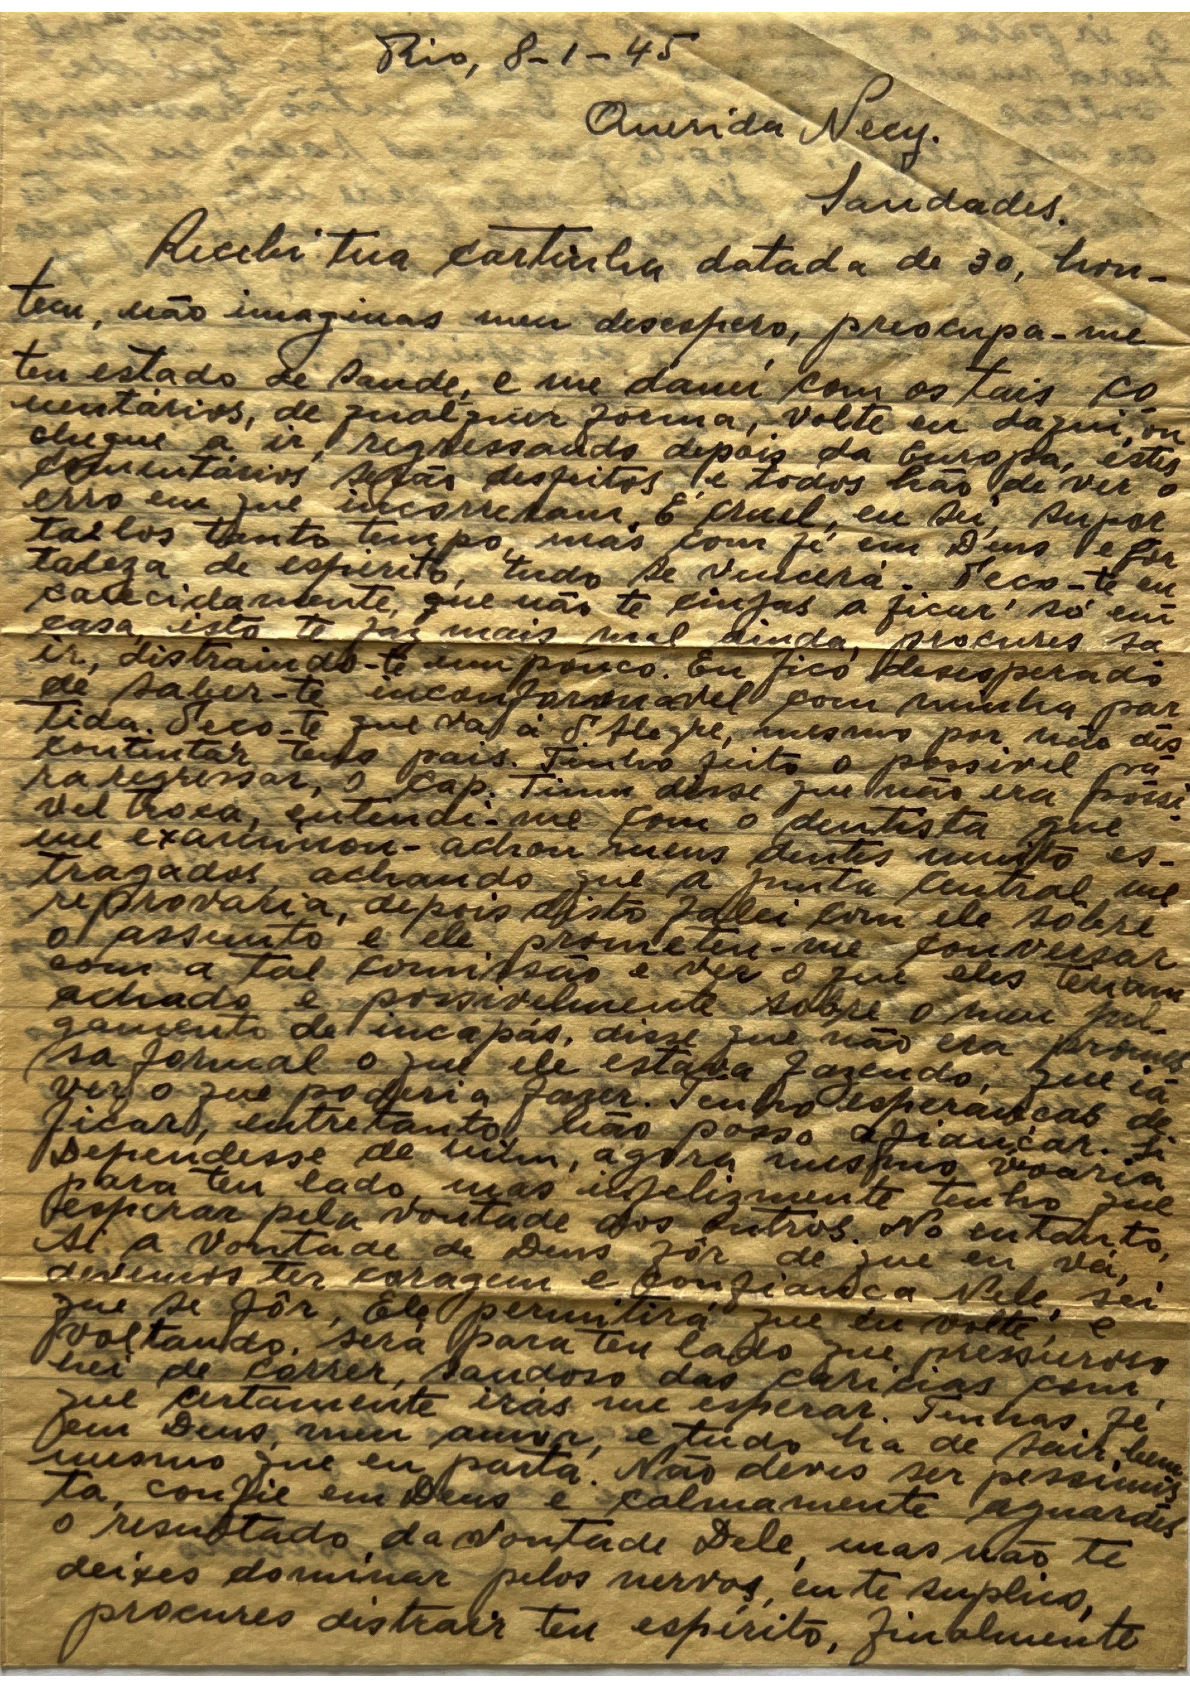 Rio, 8-1-45
Querida Necy.
Saudades.
Recebi tua cartinha datada de 30, hon-
tem, não imaginas meu desespero, preocupa-me
teu estado de saude, e me danei com os tais co
mentários, de qualquer forma, volte eu daqui, ou
chegue a ir, regressando depois da Europa, estes
comentários serão desfeitos, e todos hão de ver o
erro em que incorreram. É cruel, eu sei, supor
ta-los tanto tempo, mas com fé em Deus e for
taleza de espirito, tudo se vencerá. Peco-te en
carecidamente, que não te cinjas a ficar só em
casa, isto te faz mais mal ainda, procures sa
ir, distraindo-te um pouco. Eu fico desesperado
de saber-te inconformavel com minha par
tida. Peco-te que vá á P. Alegre, mesmo por não des
contentar teus pais. Tenho feito o possivel pa
ra regressar, o Cap. disse que não era possi
vel troca, entendi-me com o dentista que
me examinou - achou meus dentes muito es-
tragados, achando que a junta Central me
reprovaria, depois disto falei com ele sobre
o assunto e ele prometeu-me conversar
com a tal comissão e ver o que eles teriam
achado e possivelmente sobre o meu jul-
gamento de incapás, disse que não era promes
sa formal o que ele estava fazendo, que ia
ver o que poderia fazer. Tenho esperanças de
ficar, entretanto não posso afiançar. Si
Dependesse de mim, agora mesmo voaria
para teu lado, mas infelizmente tenho que
esperar pela vontade dos outros. No entanto,
si a vontade de Deus fôr de que eu vá,
devemos ter coragem e confiança Nele, sei
que se fôr, Ele permitirá que eu volte, e
voltando, será para teu lado que pressuroso
hei de correr, saudoso das caricias com
que certamente irás me esperar. Tenhas fé
em Deus, meu amor, e tudo ha de sair bem,
mesmo que eu parta. Não deves ser pessimis
ta, confie em Deus e calmamente aguardes
o resultado da vontade Dele, mas não te
deixes dominar pelos nervos, eu te suplico,
procures distrair teu espírito, finalmente